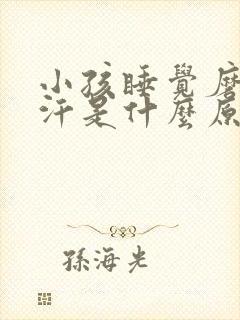 小孩睡覺磨
汗是什麼原
孫海光